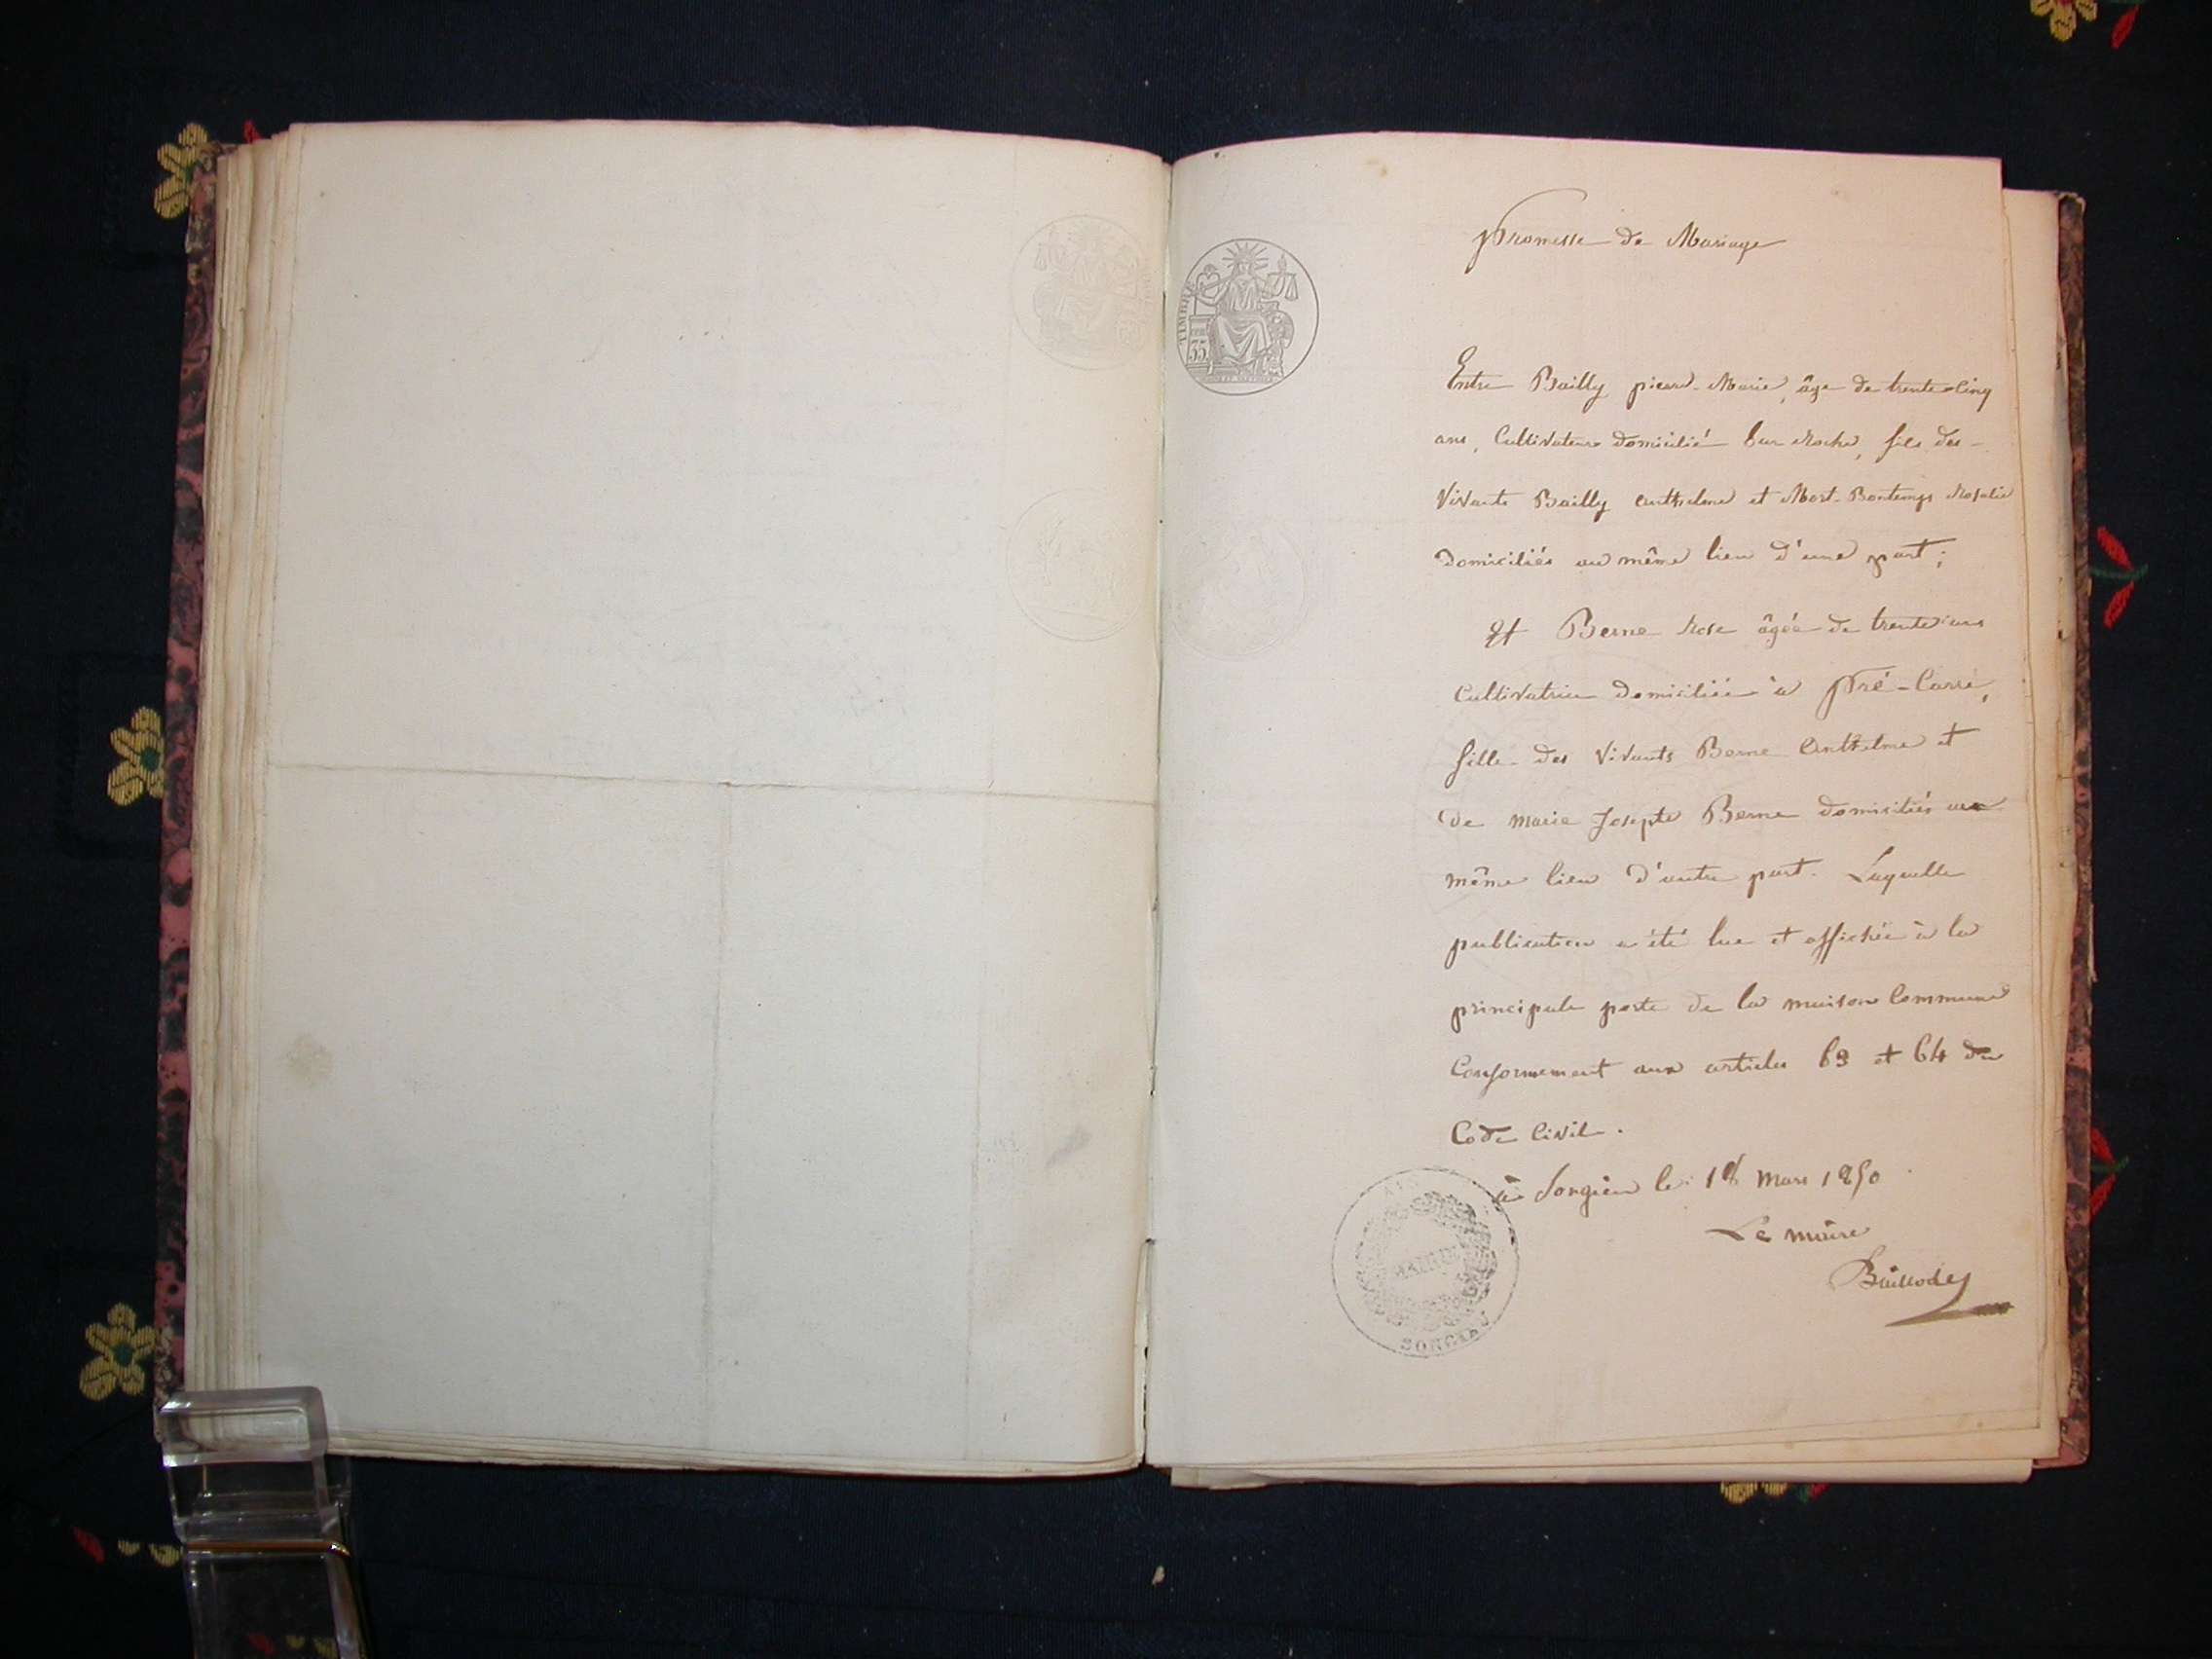 Promesse de Mariage
TIMBRE
35
Entre Bailly picard-Marie, âge de trente-cinq
ans, Cultivateur domicilié Sur Roche, fils des-
Vivants Bailly anthelme et Mort-Bontemps Rosalie
Domiciliés au même lieu d'une part;
Et Berne Rose âgée de trente ans
Cultivatrice domiciliée à Pré-Carré,
fille des Vivants Berne Anthelme et
de marie Josepte Berne domiciliés au
même lieu d'autre part. Laquelle
publication a été lue et affichée à la
principale porte de la maison Commune
Conformement aux articles 63 et 64 du
Code Civil.
à Songieu le 18 mars 1850
Le maire
MAIRIE